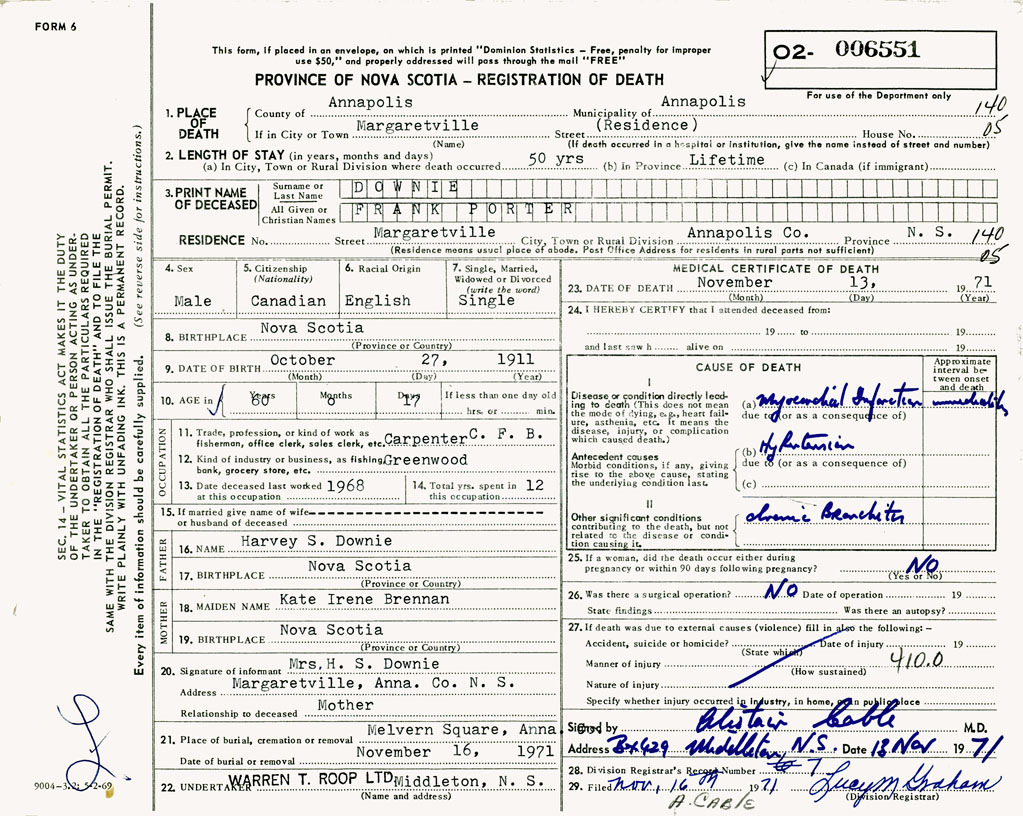 FORM 6
This form, if placed in an envelope, on which is printed "Dominion Statistics — Free, penalty for improper
use $50," and properly addressed will pass through the mail "FREE"
O2- 006551
For use of the Department only
PROVINCE OF NOVA SCOTIA — REGISTRATION OF DEATH
1. PLACE OF DEATH
County of Annapolis Municipality of Annapolis 140
If in City or Town Margaretville Street (Residence) House No. 05
(Name) (If death occurred in a hospital or institution, give the name instead of street and number)
2. LENGTH OF STAY (in years, months and days)
(a) In City, Town or Rural Division where death occurred 50 yrs (b) in Province Lifetime (c) In Canada (if immigrant)
3. PRINT NAME OF DECEASED
Surname or Last Name DOWNIE
All Given or Christian Names FRANK PORTER
RESIDENCE No. Street Margaretville City, Town or Rural Division Annapolis Co. Province N. S. 140
(Residence means usual place of abode. Post Office Address for residents in rural parts not sufficient) 05
4. Sex
Male
5. Citizenship
(Nationality)
Canadian
6. Racial Origin
English
7. Single, Married,
Widowed or Divorced
(write the word)
Single
8. BIRTHPLACE Nova Scotia
(Province or Country)
9. DATE OF BIRTH October 27, 1911
(Month) (Day) (Year)
10. AGE in Years 60 Months 0 Days 17 If less than one day old
hrs. or min.
OCCUPATION
11. Trade, profession, or kind of work as
fisherman, office clerk, sales clerk, etc. Carpenter C. F. B.
12. Kind of industry or business, as fishing, Greenwood
bank, grocery store, etc.
13. Date deceased last worked 1968
at this occupation
14. Total yrs. spent in 12
this occupation
15. If married give name of wife
or husband of deceased
FATHER
16. NAME Harvey S. Downie
17. BIRTHPLACE Nova Scotia
(Province or Country)
MOTHER
18. MAIDEN NAME Kate Irene Brennan
19. BIRTHPLACE Nova Scotia
(Province or Country)
20. Signature of informant Mrs. H. S. Downie
Address Margaretville, Anna. Co. N. S.
Relationship to deceased Mother
21. Place of burial, cremation or removal Melvern Square, Anna.
Date of burial or removal November 16, 1971
22. UNDERTAKER WARREN T. ROOP LTD. Middleton, N. S.
(Name and address)
MEDICAL CERTIFICATE OF DEATH
23. DATE OF DEATH November 13, 19 71
(Month) (Day) (Year)
24. I HEREBY CERTIFY that I attended deceased from:
19 to 19
and last saw h alive on 19
CAUSE OF DEATH
Approximate
interval be-
tween onset
and death
I
Disease or condition directly lead-
ing to death (This does not mean
the mode of dying, e.g., heart fail-
ure, asthenia, etc. It means the
disease, injury, or complication
which caused death.)
(a) Myocardial Infarction immediately
due to (or as a consequence of)
Antecedent causes
Morbid conditions, if any, giving
rise to the above cause, stating
the underlying condition last.
(b) Hypertension
due to (or as a consequence of)
(c)
II
Other significant conditions
contributing to the death, but not
related to the disease or condi-
tion causing it.
chronic Bronchitis
25. If a woman, did the death occur either during
pregnancy or within 90 days following pregnancy? NO
(Yes or No)
26. Was there a surgical operation? NO Date of operation 19
State findings Was there an autopsy?
27. If death was due to external causes (violence) fill in also the following: —
Accident, suicide or homicide? Date of injury 19
(State which)
Manner of injury 410.0
(How sustained)
Nature of injury
Specify whether injury occurred in industry, in home, or in public place
Signed by Alistair Cable M.D.
Address Bx 429 Middleton, N.S. Date 13 Nov 1971
28. Division Registrar's Record Number 7
29. Filed Nov, 16th 1971 Lucy M Graham
(Division Registrar)
A. CABLE
SEC. 14 — VITAL STATISTICS ACT MAKES IT THE DUTY
OF THE UNDERTAKER OR PERSON ACTING AS UNDER-
TAKER TO OBTAIN ALL THE PARTICULARS REQUIRED
IN THE "REGISTRATION OF DEATH" AND TO FILE THE
SAME WITH THE DIVISION REGISTRAR WHO SHALL ISSUE THE BURIAL PERMIT.
WRITE PLAINLY WITH UNFADING INK. THIS IS A PERMANENT RECORD.
Every item of information should be carefully supplied. (See reverse side for instructions.)